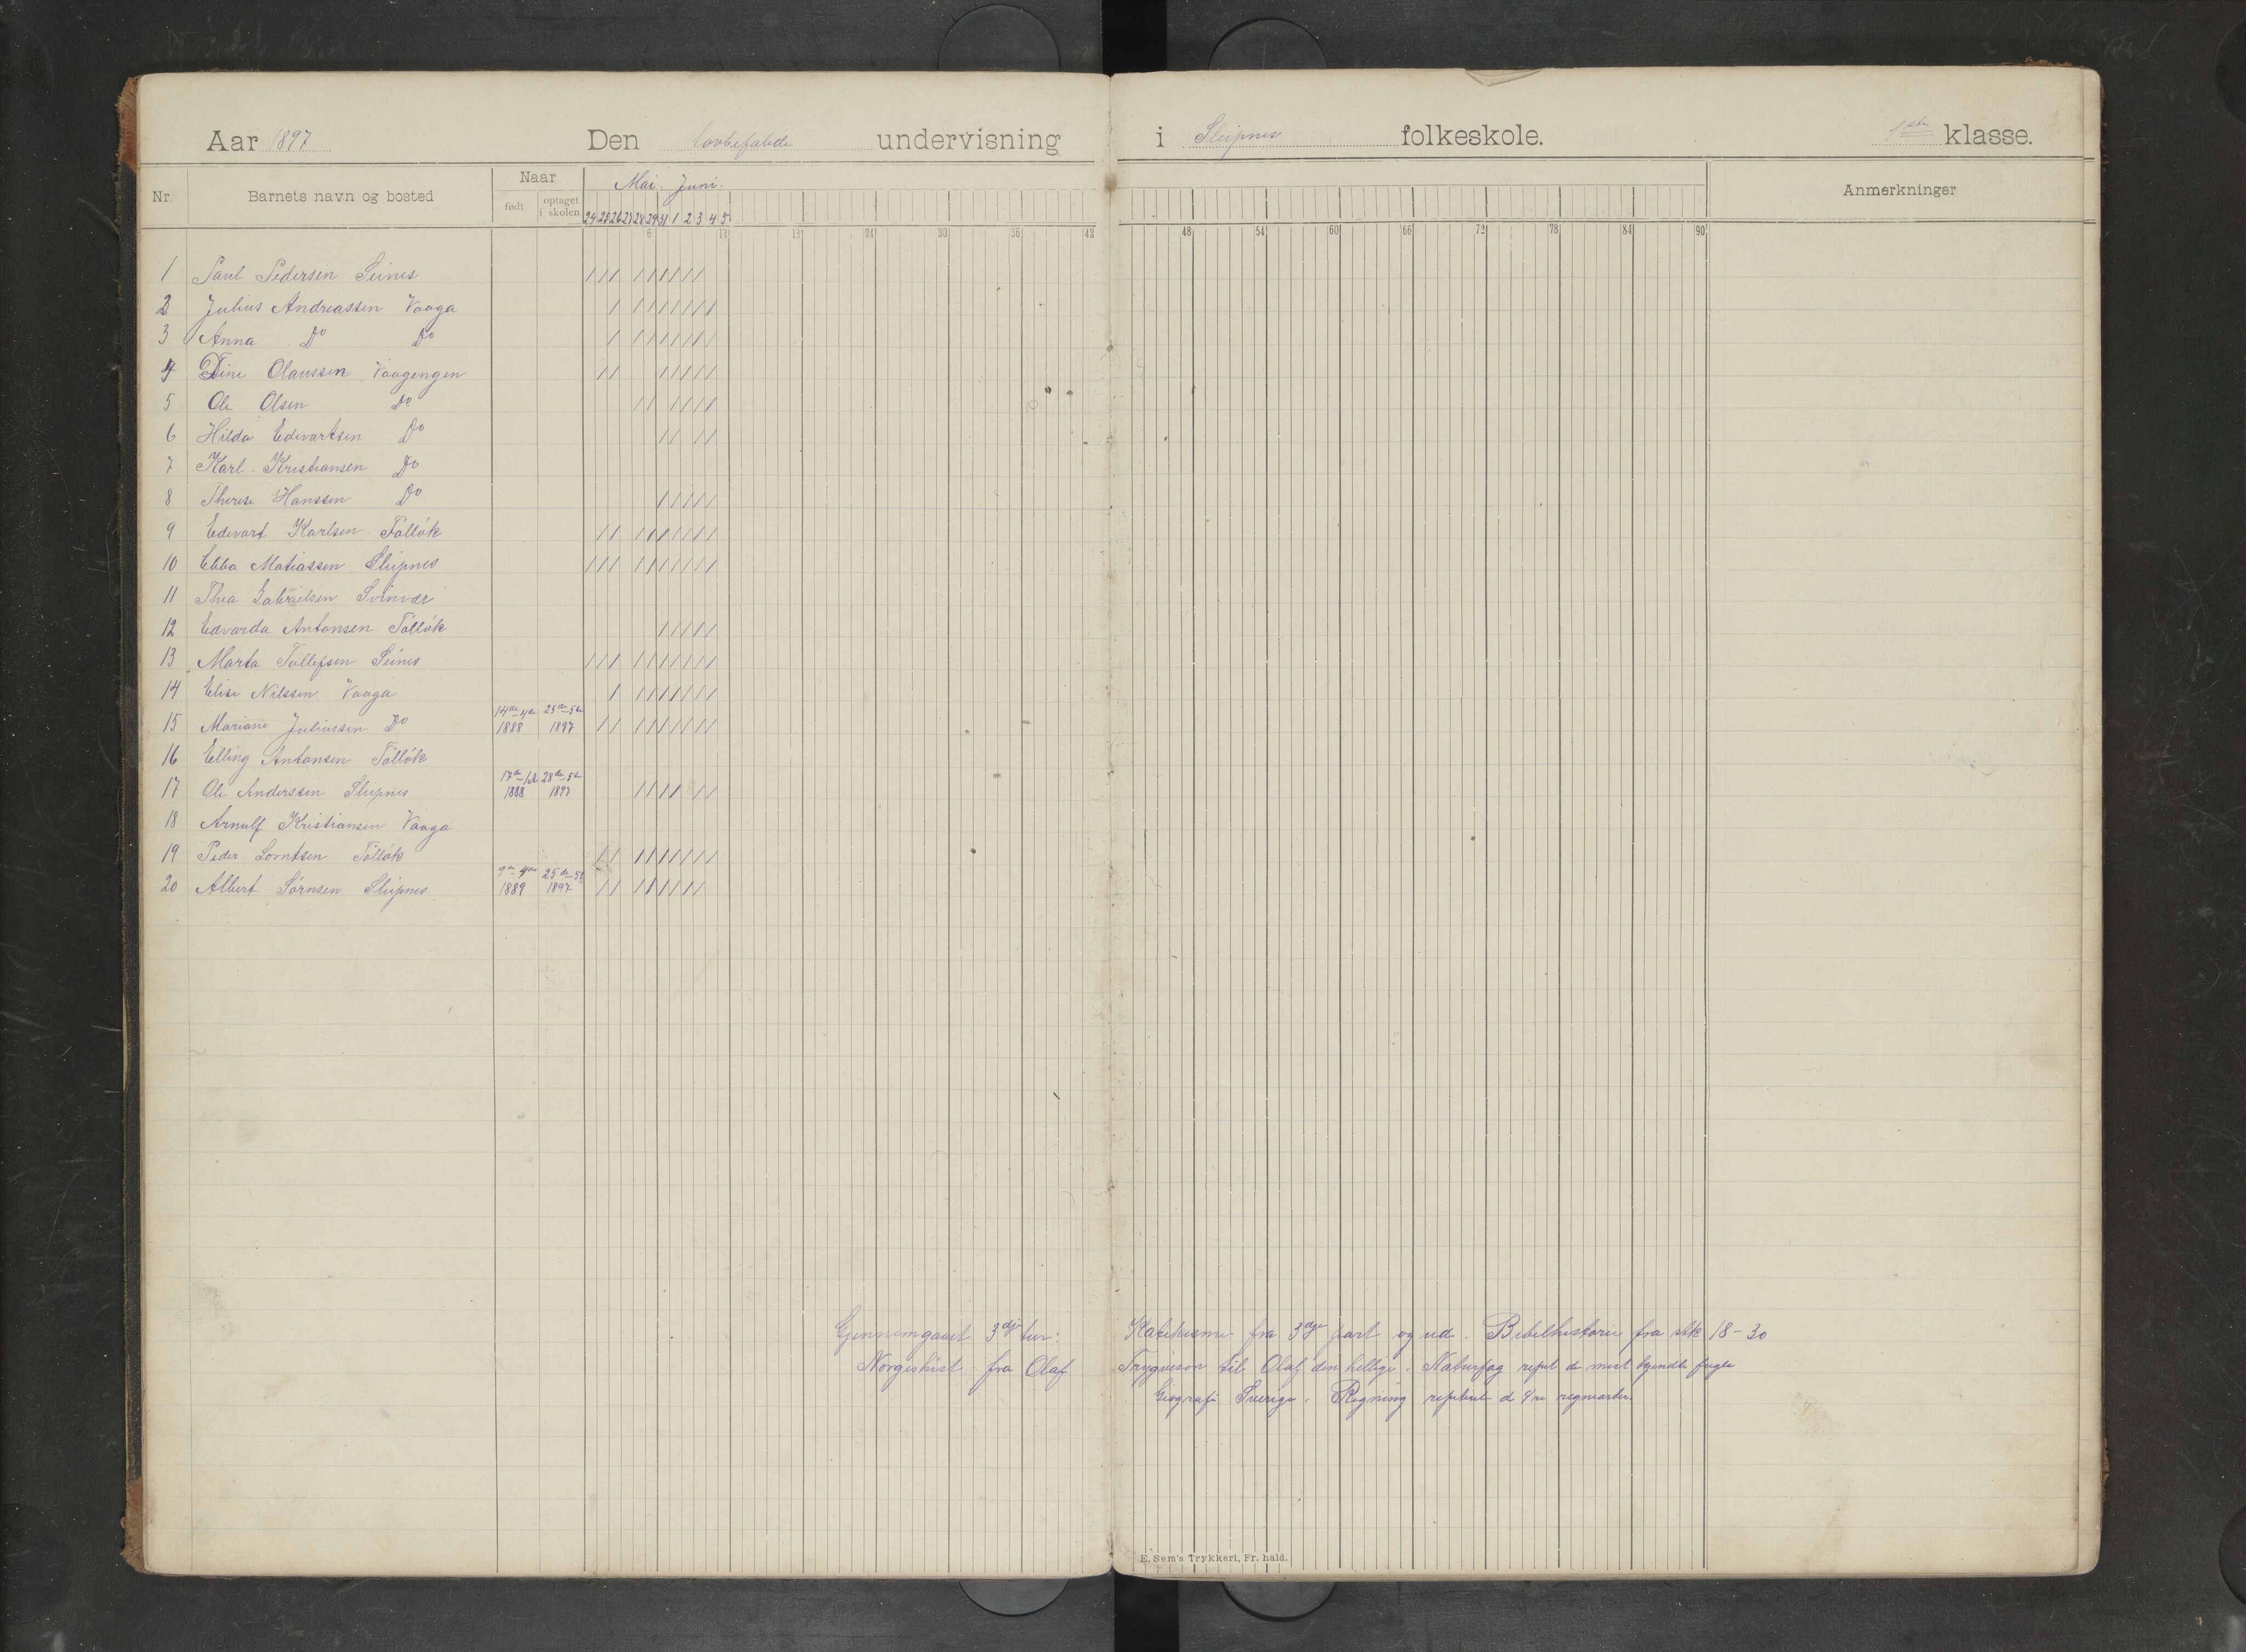 Aar 1897 Den lovbefalede undervisning i Sleipnes folkeskole. 1ste klasse.
Nr. Barnets navn og bosted Naar født optaget i skolen Mai. Juni. Anmerkninger
24 25 26 27 28 29 31 1 2 3 4 5
6 12 18 24 30 36 42 48 54 60 66 72 78 84 90
1 Paul Pedersen Seines
2 Julius Andreassen Vaaga
3 Anna Do Do
4 Dine Olaussen Vaagengen
5 Ole Olsen Do
6 Hilda Edvartsen Do
7 Karl Kristiansen Do
8 Therese Hanssen Do
9 Edevart Karlsen Tölløk
10 Ebba Matiassen Sleipnes
11 Thea Gabrielsen Svinvær
12 Edvarda Antonsen Tölløk
13 Marta Tollefsen Seines
14 Elise Nilssen Vaaga
15 Mariane Juliussen Do 14de-4de 1888 25de-5te 1897
16 Elling Antonsen Tölløk
17 Ole Anderssen Sleipnes 1888 28de-5te 1897
18 Arnulf Kristiansen Vaaga
19 Peder Lorntsen Tölløk
20 Albert Sörnsen Sleipnes 1889 25de-5te 1897
Gjennemgaaet 3dje tur: Katekisme fra 3dje part og ud. Bibelhistorie fra stk 18-30
Norgeshist. fra Olaf Trygveson til Olaf den hellige. Naturfag repet de mest kjendte fugle
Geografi Sverige. Regning repeteret d 4re regnearter.
E. Sem's Trykkeri, Fr. hald.